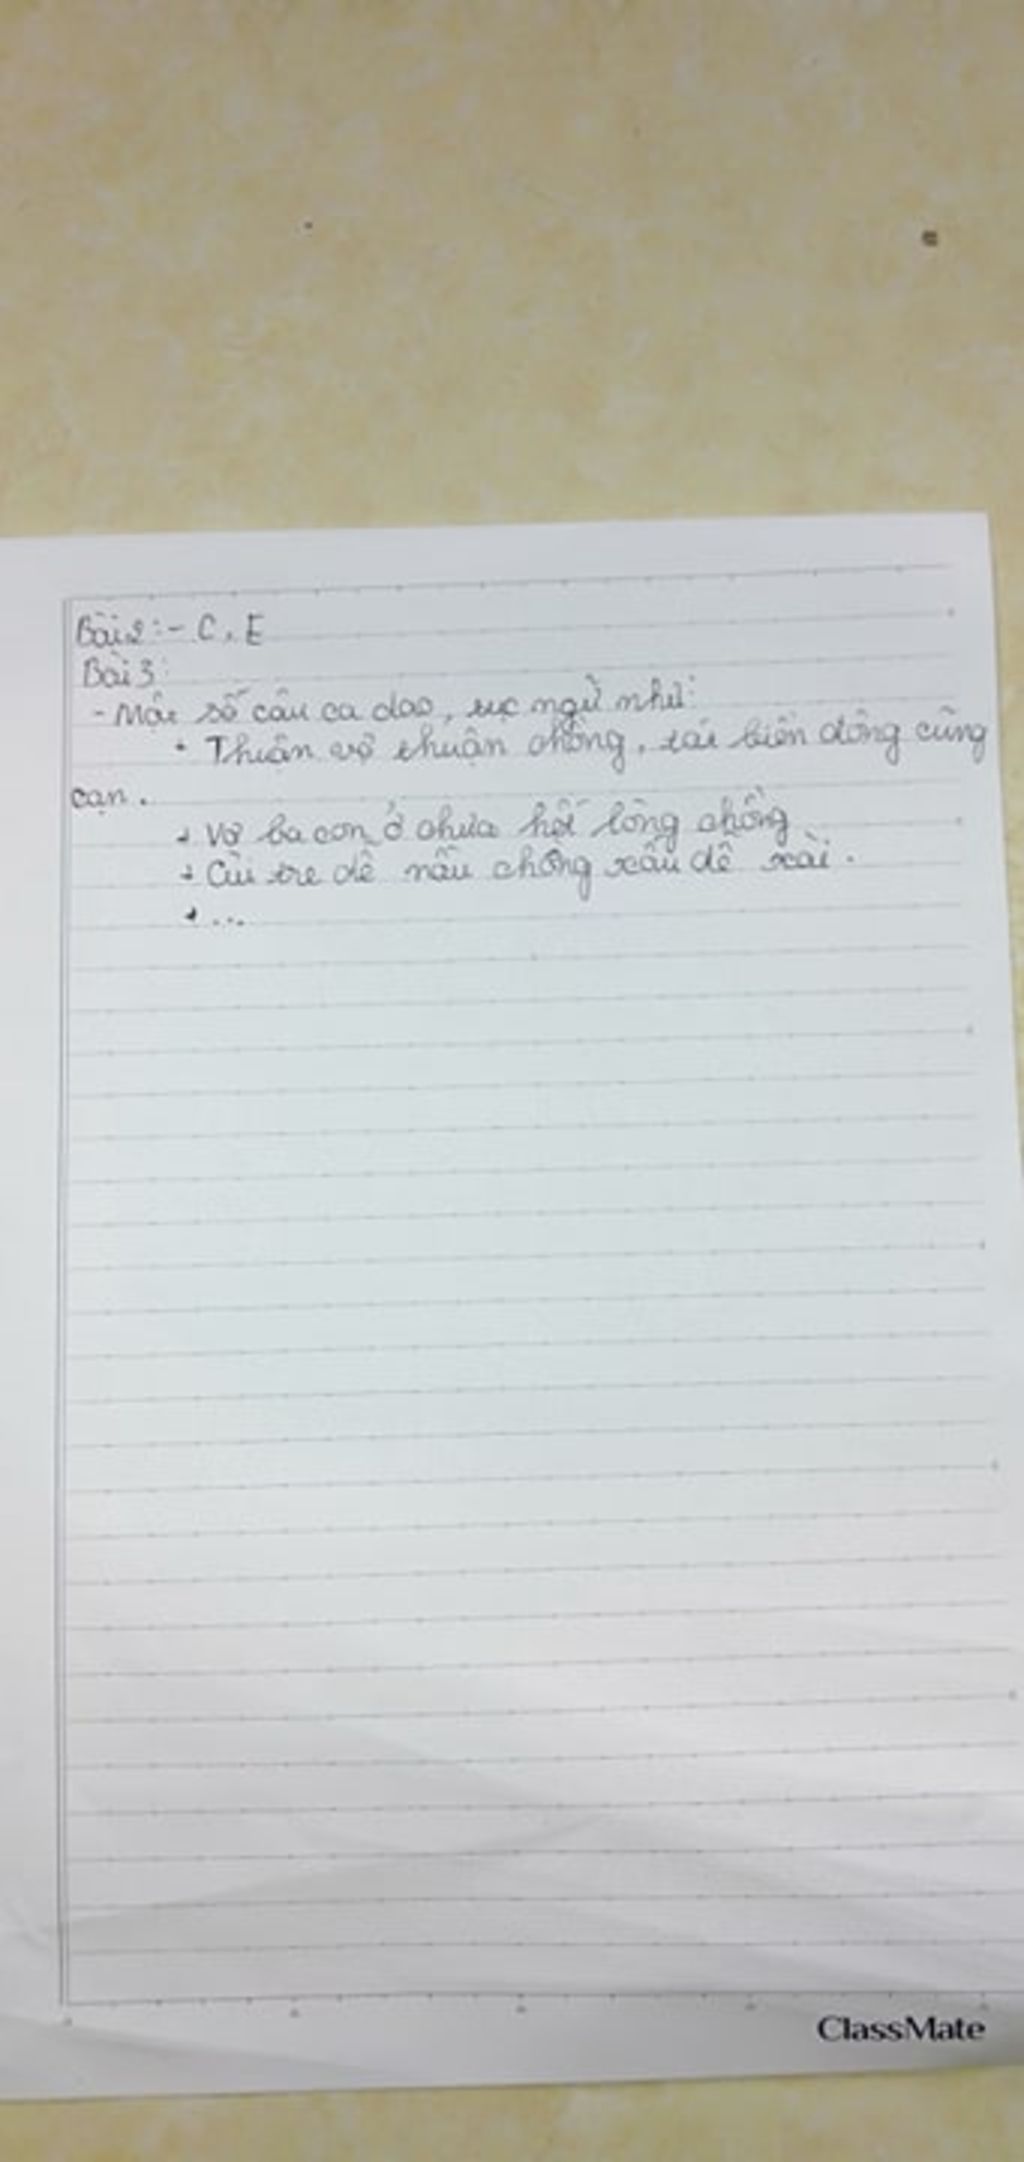 Bài 2: - C, E
Bài 3:
- Một số câu ca dao, tục ngữ như:
• Thuận vợ thuận chồng, tát biển đông cũng
cạn.
+ Vợ ba con ở chưa hết lòng chồng
+ Củi tre dễ nấu chồng xấu dễ xài.
+ ...
ClassMate